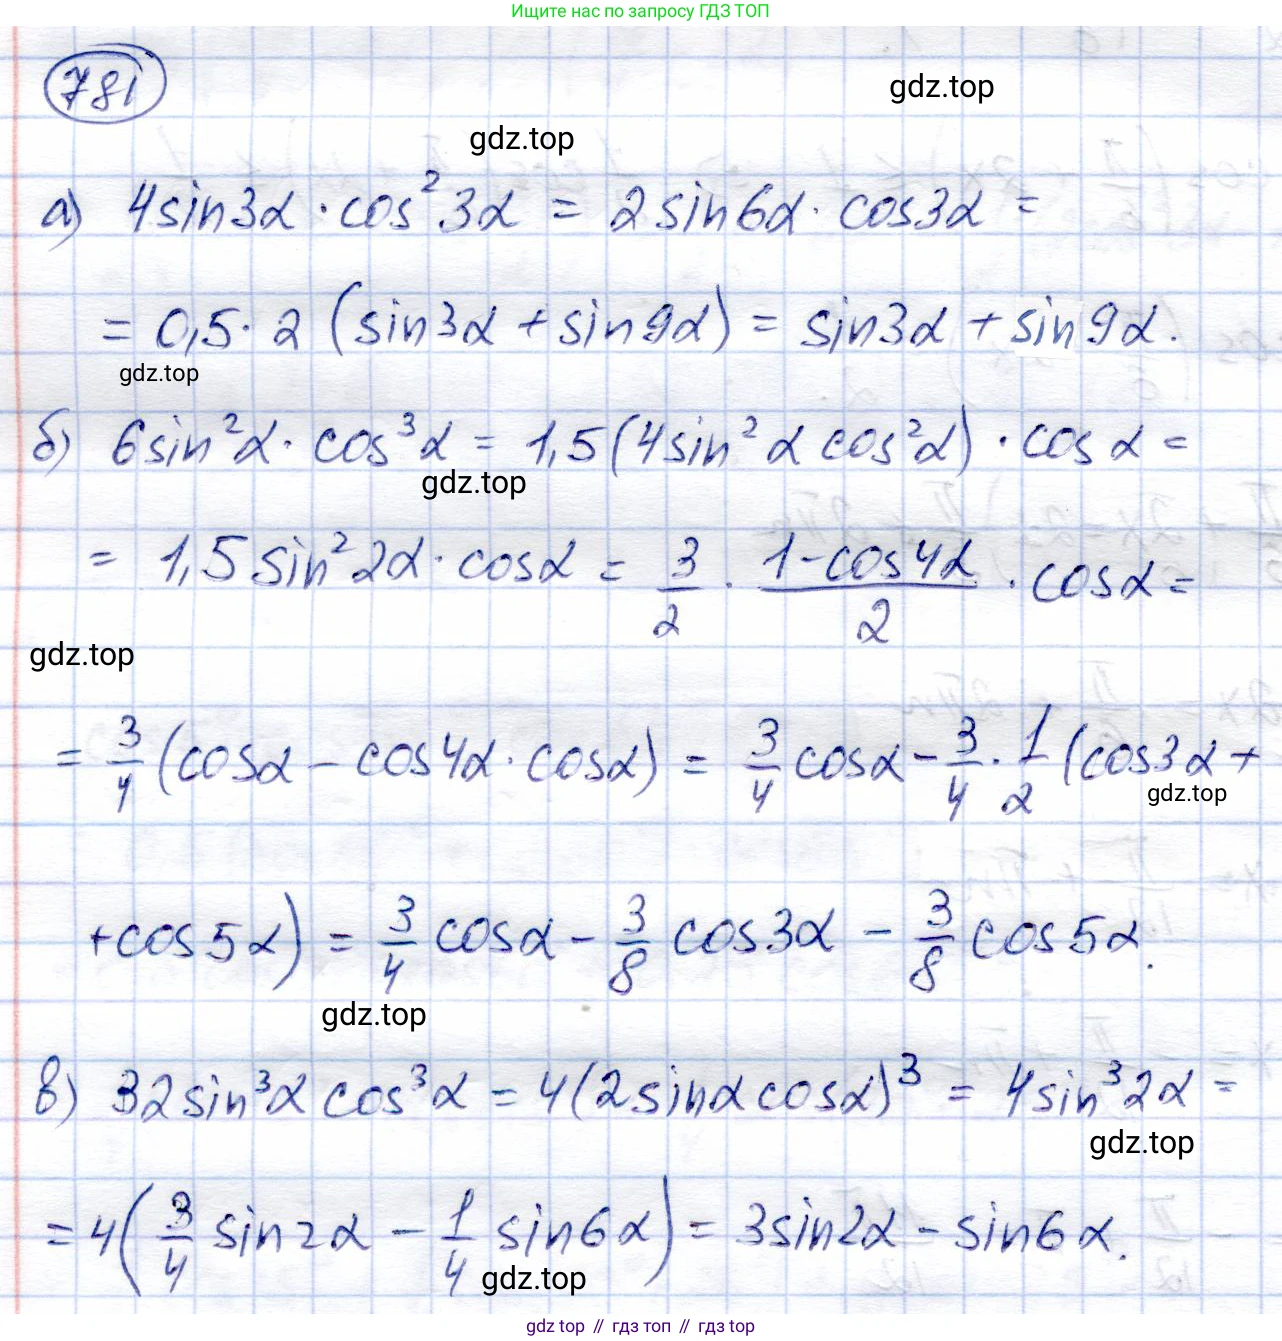 Ищите нас по запросу ГДЗ ТОП
781
gdz.top
gdz.top
а) 4sin3α · cos²3α = 2sin6α · cos3α =
= 0,5 · 2 (sin3α + sin9α) = sin3α + sin9α.
gdz.top
б) 6sin²α · cos³α = 1,5(4sin²α cos²α) · cosα =
gdz.top
= 1,5sin²2α · cosα = 3/2 · (1-cos4α)/2 · cosα =
gdz.top
= 3/4 (cosα - cos4α · cosα) = 3/4 cosα - 3/4 · 1/2 (cos3α +
gdz.top
+cos5α) = 3/4 cosα - 3/8 cos3α - 3/8 cos5α.
gdz.top
в) 32sin³α cos³α = 4(2sinα cosα)³ = 4sin³2α =
gdz.top
= 4(3/4 sin2α - 1/4 sin6α) = 3sin2α - sin6α.
gdz.top
gdz top // гдз топ // гдз top